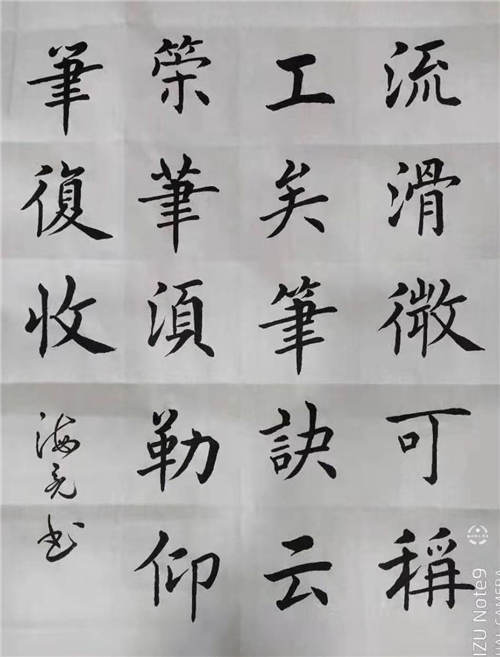 流滑微可稱
工矣筆訣云
策筆須勒仰
筆復收
海亮书
IZU Note9
AL CAMERA